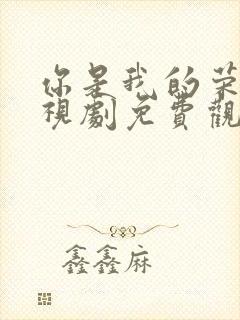 你是我的荣
視劇免費觀
鑫鑫麻